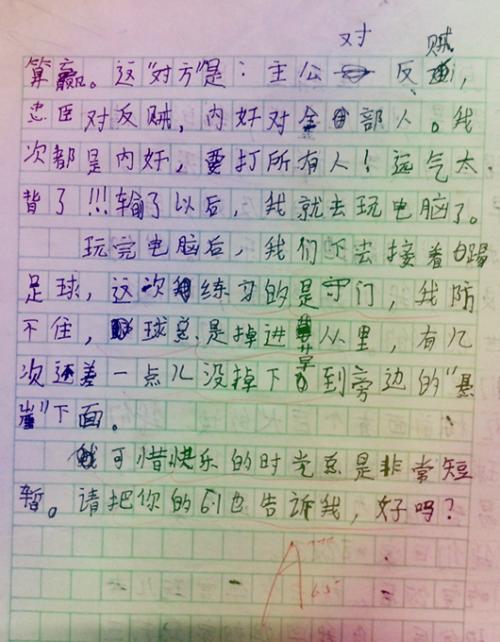 对 贼
算赢。这"对方"是：主公 反 ，
忠臣对反贼，内奸对全部人。我
次都是内奸，要打所有人！运气太
背了!!!输了以后，我就去玩电脑了。
玩完电脑后，我们下去接着踢
足球，这次练习的是守门，我防
不住，球总是掉进草丛里，有几
次还差一点儿没掉下到旁边的"悬
崖"下面。
可惜快乐的时光总是非常短
暂。请把你的也告诉我，好吗？
A